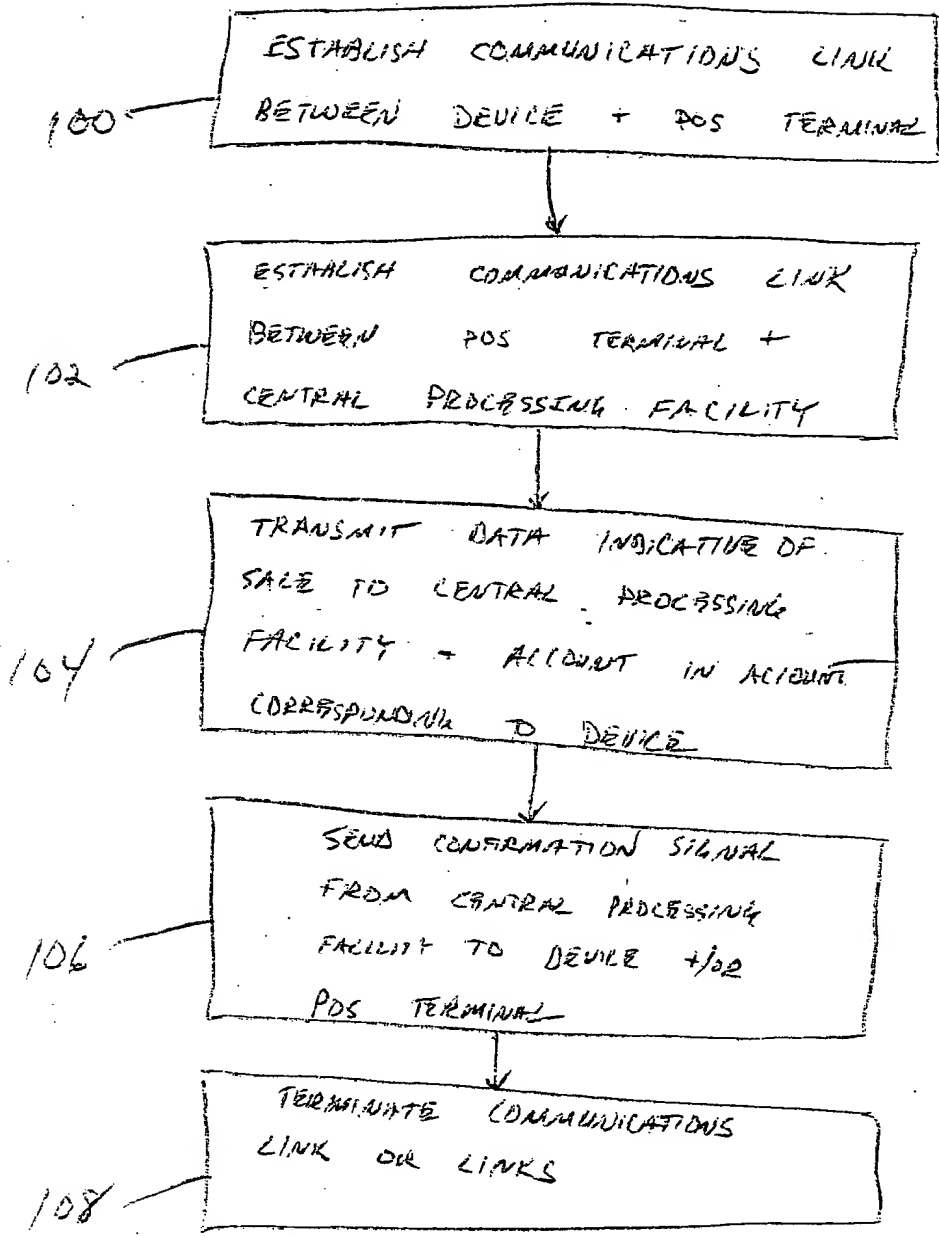 ESTABLISH COMMUNICATIONS LINK
100
BETWEEN DEVICE + POS TERMINAL
ESTABLISH COMMUNICATIONS LINK
BETWEEN POS TERMINAL +
102
CENTRAL PROCESSING FACILITY
TRANSMIT DATA INDICATIVE OF
SALE TO CENTRAL PROCESSING
104
FACILITY - ACCOUNT IN ACCOUNT
CORRESPONDING TO DEVICE
SEND CONFIRMATION SIGNAL
FROM CENTRAL PROCESSING
106
FACILITY TO DEVICE +/OR
POS TERMINAL
TERMINATE COMMUNICATIONS
LINK OR LINKS
108